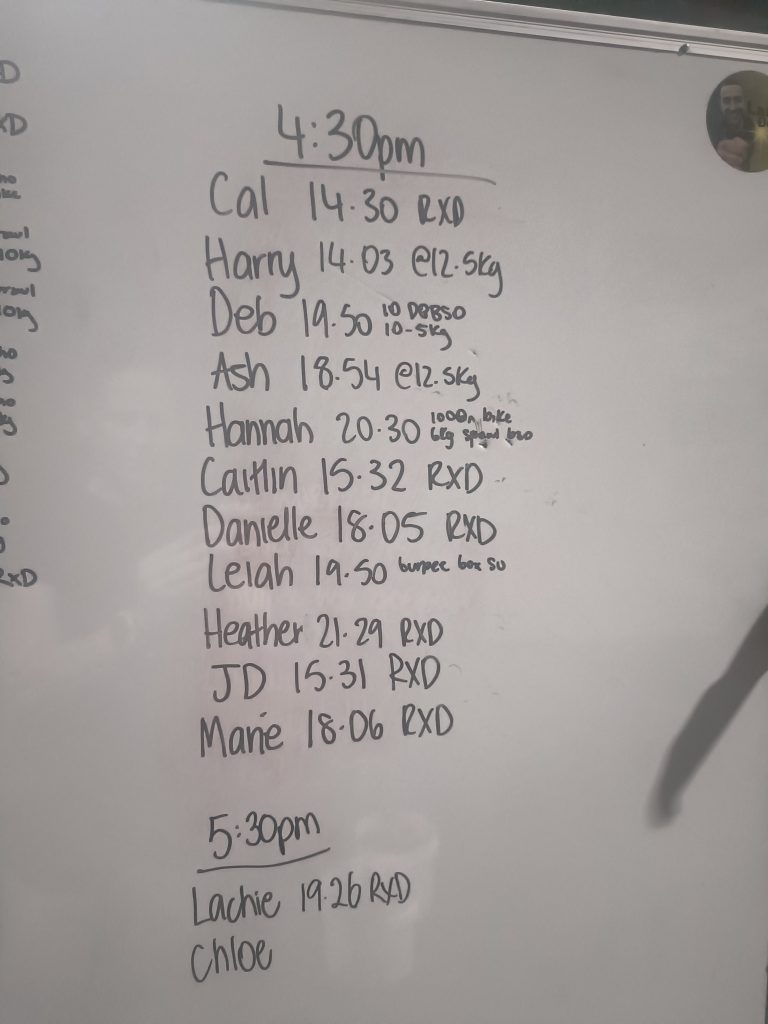 4:30pm
Cal 14.30 RXD
Harry 14.03 @12.5kg
Deb 19.50 10 DBBSO
10-5kg
Ash 18.54 @12.5kg
Hannah 20.30 1000m bike
6kg
Caitlin 15.32 RXD
Danielle 18.05 RXD
Leiah 19.50 burpee box SU
Heather 21.29 RXD
JD 15.31 RXD
Marie 18.06 RXD
5:30pm
Lachie 19.26 RXD
Chloe